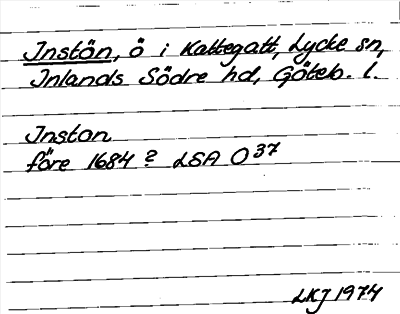 Instön, ö i Kattegatt, Lycke sn,
Inlands Södre hd, Göteb. l.
Inston
före 1684 ? LSA O 37
LKJ 1974